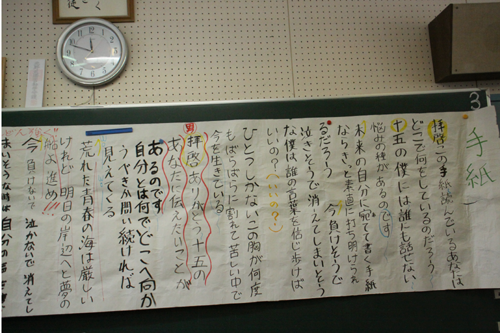 手紙
拝啓この手紙読んでいるあなたは
どこで何をしているのだろう
十五の僕には誰にも話せない
悩みの種があるのです
未来の自分に宛てて書く手紙
ならきっと素直に打ち明けられ
るだろう 今負けそうで
泣きそうで消えてしまいそう
な僕は誰の言葉を信じ歩けば
いいの?
ひとつしかないこの胸が何度
もばらばらに割れて苦しい中で
今を生きている
拝啓ありがとう十五の
あなたに伝えたいことが
あるのです
自分とは何でどこへ向か
うべきか問い続ければ
見えてくる
荒れた青春の海は厳しい
けれど明日の岸辺へと夢の
船よ進め!!!
今 負けないで 泣かないで消えてし
まいそうな時は自分の